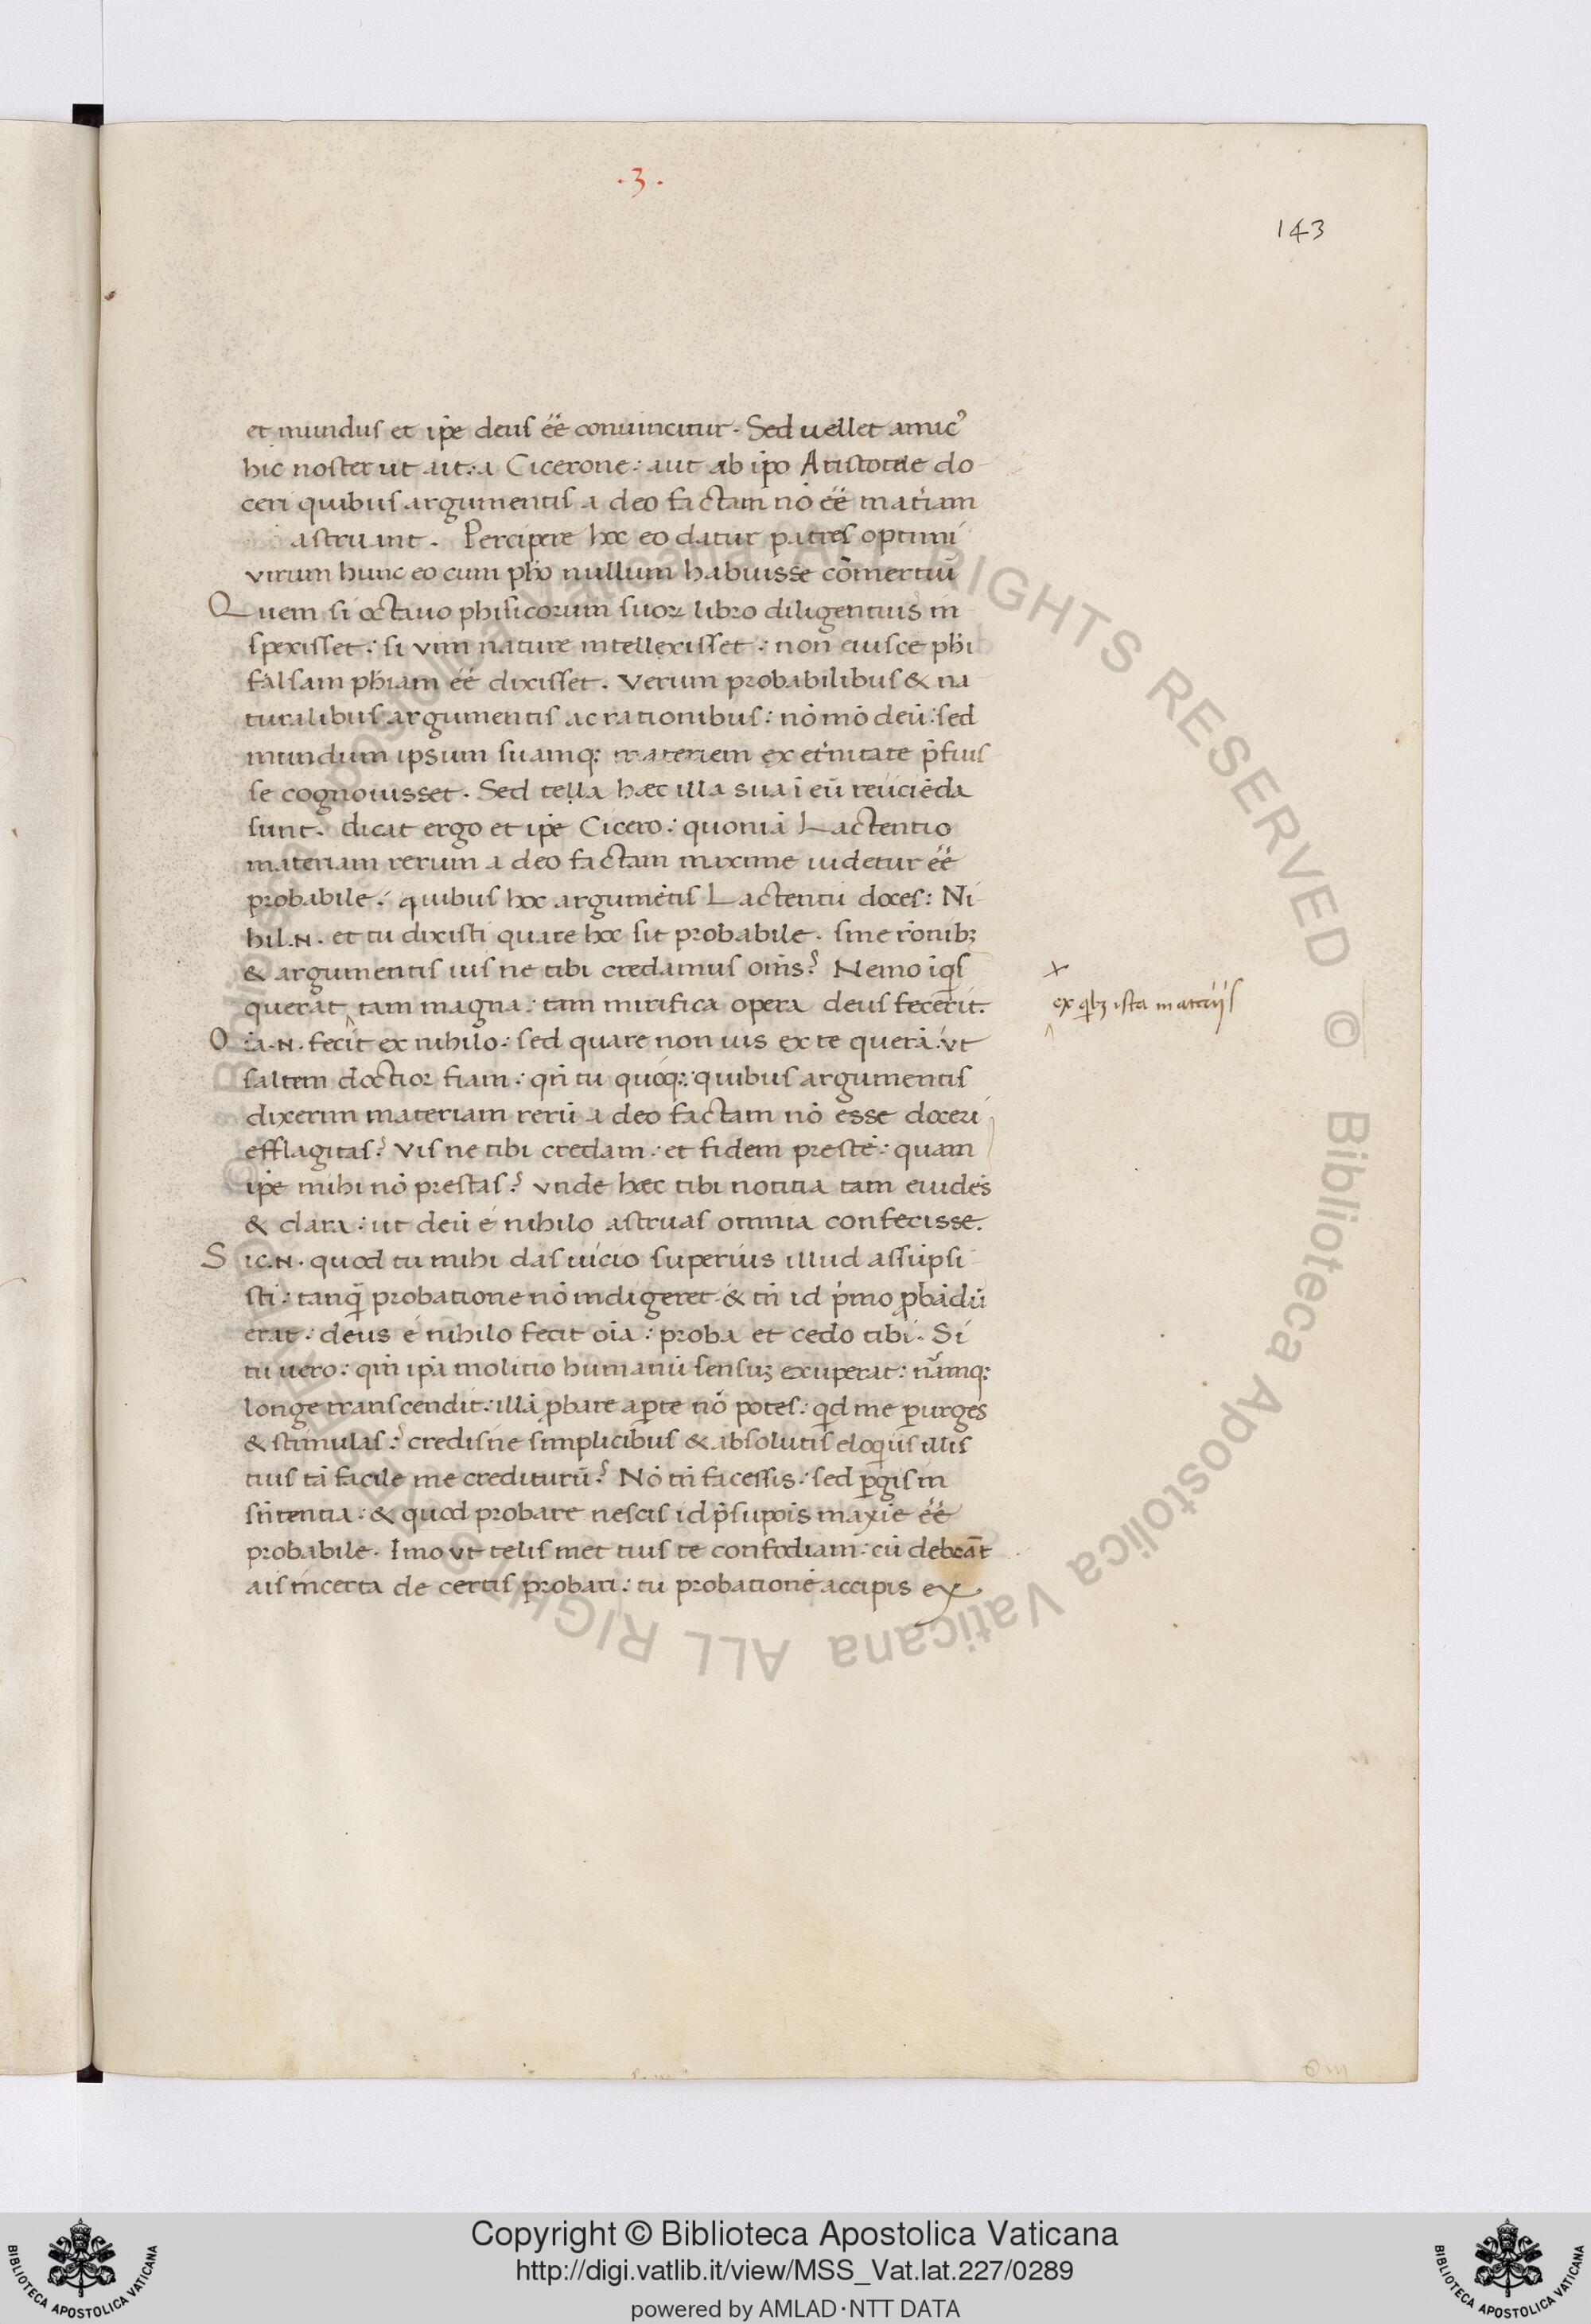 ·3·
143
et mundus et ip̄e deus ēē conuincitur. Sed uellet amicꝰ
hic noster ut ait: a Cicerone: aut ab ip̄o Aristotele do
ceri quibus argumentis a deo factam nō ēē mat̄iam
astruant. Percipere hoc eo datur patres optimi
virum hunc eo cum ph̄o nullum habuisse cōmertiū
Quem si octauo phisicorum suoꝝ libro diligentius in
spexisset: si vim nature intellexisset: non eiusce ph̄i
falsam ph̄iam ēē dixisset. Verum probabilibus & na
turalibus argumentis ac rationibus: nō mō deū: sed
mundum ipsum suamqꝫ materiem ex et̄nitate p̄fuis
se cognouisset. Sed tella hæc illa sua ī eū reiīciēda
sunt. dicat ergo et ip̄e Cicero: quoniā Lactentio
materiam rerum a deo factam maxime uidetur ēē
probabile: quibus hoc argumētis Lactenti doces: Ni
hil.N. et tu dixisti quare hoc sit probabile. sine rōnibꝫ
& argumentis uis ne tibi credamus om̄s? Nemo īq̄s
querat tam magna: tam mirifica opera deus fecerit.
×
ex q̄bꝫ ista materiis
Qīa.N. fecit ex nihilo: sed quare non uis ex te querā: ut
saltem doctior fiam: qn̄ tu quoqꝫ: quibus argumentis
dixerim materiam rerū a deo factam nō esse doceri
efflagitas? Vis ne tibi credam: et fidem prestē: quam
ip̄e mihi nō prestas? vnde hæc tibi notitia tam euidēs
& clara: ut deū e nihilo astruas omnia confecisse.
Sic.N. quod tu mihi das uicio superius illud assūpsi
sti: tanq̄ probatione nō indigeret & tn̄ id p̄mo ꝓbādū
erat: deus e nihilo fecit oīa: proba et cedo tibi. Si
tu uero: qm̄ ip̄a molitio humanū sensuꝫ exuperat: nāmqꝫ
longe transcendit: illā ꝓbare aꝑte nō potes: qd me ꝑurges
& stimulas? credisne simplicibus & absolutis eloquiis illis
tuis tā facile me crediturū? Nō tn̄ facessis: sed ꝑgis in
sn̄tentia: & quod probare nescis id p̄supōis maxīe ēē
probabile. Imo vt telis met tuis te confodiam: cū debeāt
ais incerta de certis probari: tu probationē accipis ex
Copyright © Biblioteca Apostolica Vaticana
http://digi.vatlib.it/view/MSS_Vat.lat.227/0289
powered by AMLAD·NTT DATA